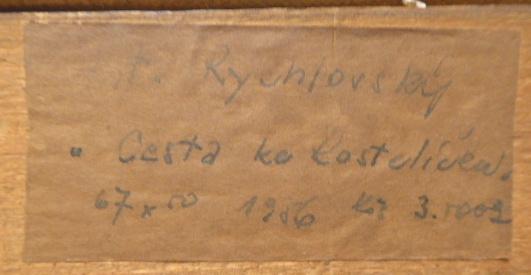 Rychlovský
" Cesta ke kostelíčku".
67 x 50 1956 Kčs